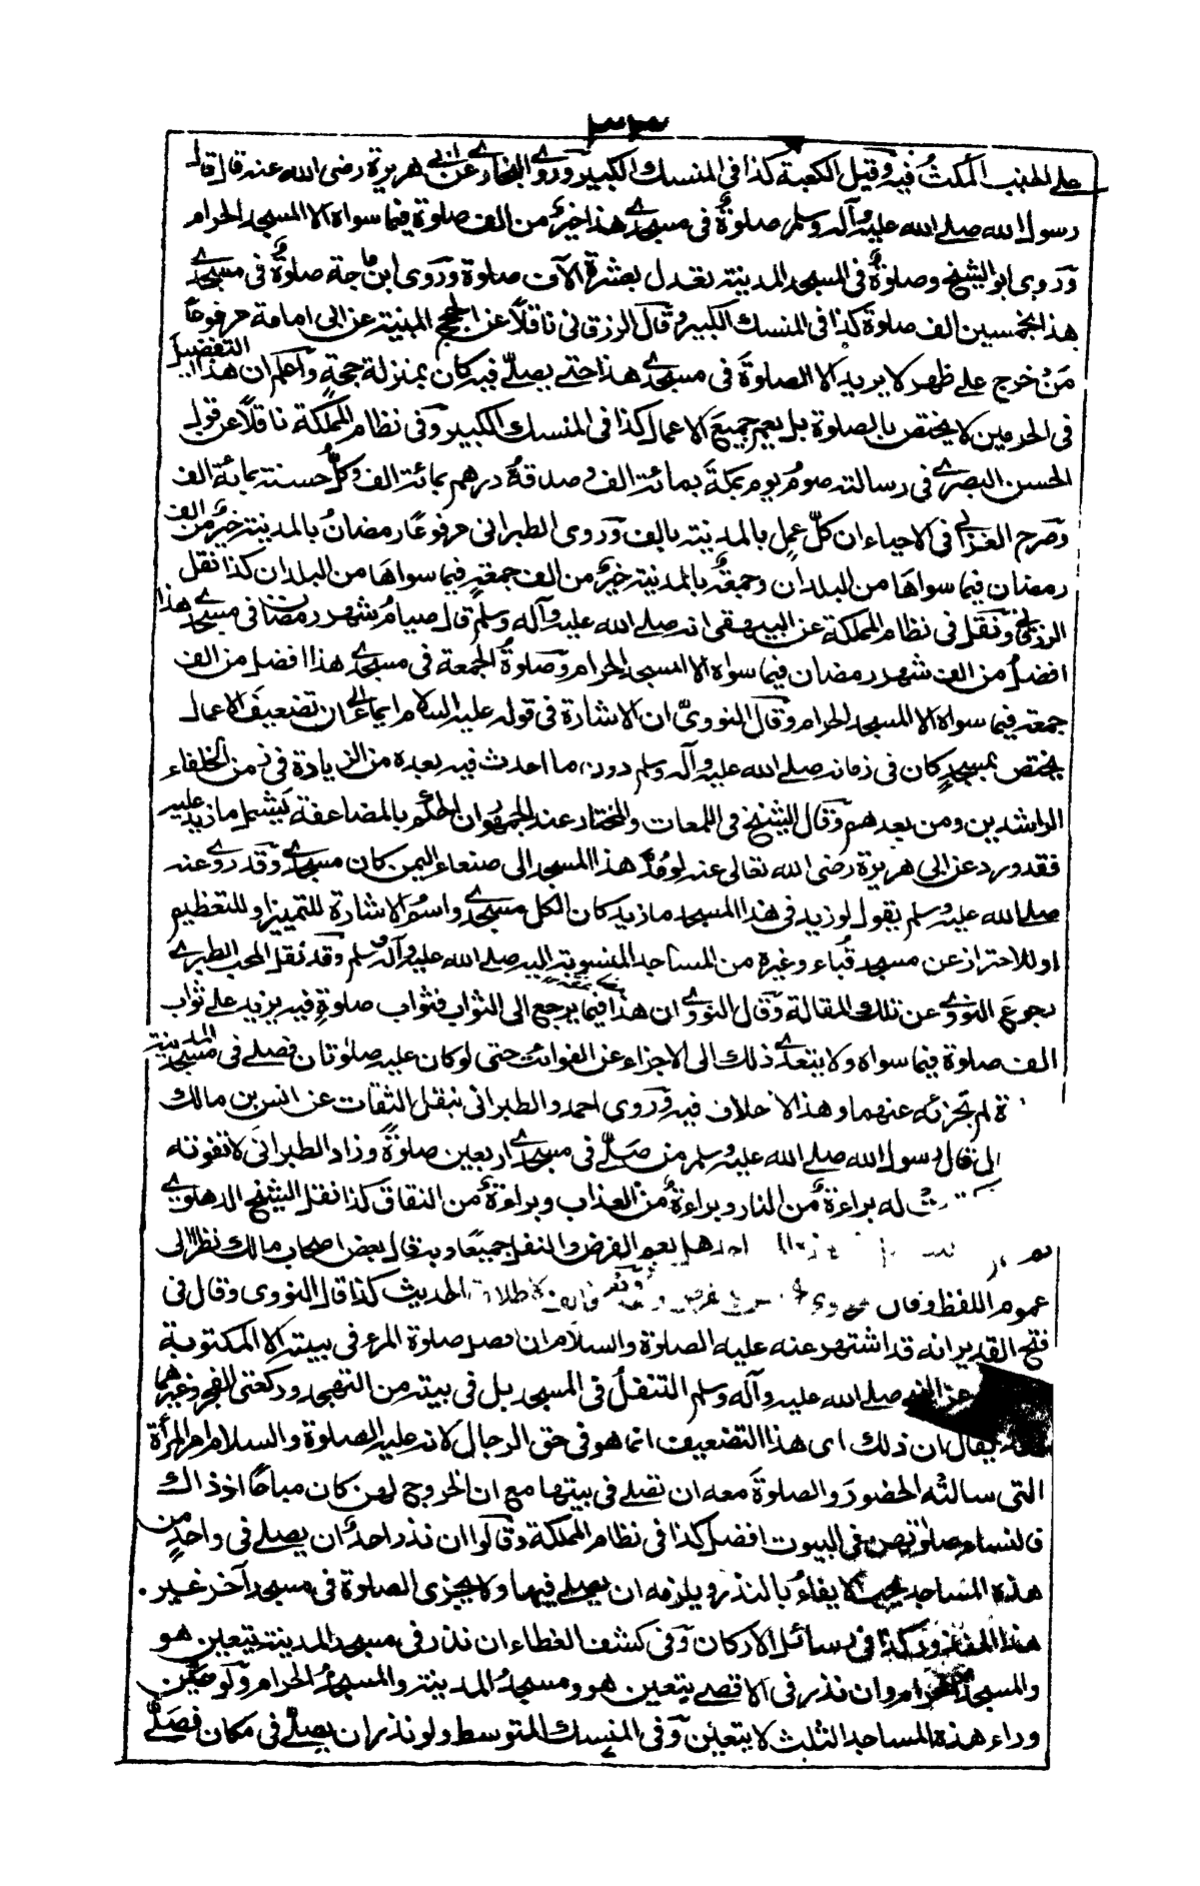 على الجنب المكث فيه وقيل الكعبة كذا فى المنسك الكبير وروى البخارى عن ابى هريرة رضى الله عنه قال قال
رسول الله صلى الله عليه وآله وسلم صلوةٌ فى مسجدى هذا خيرٌ من الف صلوة فيما سواه الا المسجد الحرام
وروى ابو الشيخ وصلوةٌ فى المسجد المدينة تعدل بعشرة الآف صلوة وروى ابن ماجة صلوةٌ فى مسجدى
هذا بخمسين الف صلوة كذا فى المنسك الكبير وقال الزرقانى ناقلاً عن الحجج المبنية عن ابى امامة مرفوعاً
مَنْ خرج على طهر لا يريد الا الصلوةَ فى مسجدى هذا حتى يصلّى فيه كان بمنزلة حجةٍ واعلم ان هذا التفضيل
فى الحرمين لا يختص بالصلوة بل يعم جميعَ الاعمال كذا فى المنسك الكبير وفى نظام المملكة ناقلاً عن قول
الحسن البصرى فى رسالته صومُ يوم بمكةَ بمائة الف وصدقةُ درهم بمائة الف وكلُّ حسنة بمائة الف
وصرح الغزالى فى الاحياء ان كلّ عملٍ بالمدينة بالف وروى الطبرانى مرفوعًا رمضانُ بالمدينة خيرٌ من الف
رمضان فيما سواهَا من البلدان وجمعةٌ بالمدينة خيرٌ من الف جمعةٍ فيما سواهَا من البلدان كذا نقل
الزرقانى ونقل فى نظام المملكة عن البيهقى انه صلى الله عليه وآله وسلم قال صيامُ شهر رمضان فى مسجدى هذا
افضلُ من الف شهر رمضان فيما سواه الا المسجد الحرام وصلوةُ الجمعة فى مسجدى هذا افضل من الف
جمعة فيما سواه الا المسجد الحرام وقال النووىّ ان الاشارة فى قوله عليه السلام ايماء الى ان تضعيف الاعمال
يختص بمسجدٍ كان فى زمانه صلى الله عليه وآله وسلم دون ما احدث فيه بعده من الزيادة فى زمن الخلفاء
الراشدين ومن بعدهم وقال الشيخ فى اللمعات والمختار عند الجمهور ان الحكم بالمضاعفة يَشمل ما زيد عليه
فقد ورد عن ابى هريرة رضى الله تعالى عنه لو مُدّ هذا المسجد الى صنعاء اليمن كان مسجدى وقد روى عنه
صلى الله عليه وسلم يقول لو زيد فى هذا المسجد ما زيد كان الكل مسجدى واسمُ الاشارة للتمييز او للتعظيم
او للاحتراز عن مسجد قُباء وغيره من المساجد المنسوبة اليه صلى الله عليه وآله وسلم وقد نقل المحب الطبرى
رجوعَ النووى عن تلك المقالة وقال النووى ان هذا فيما يرجع الى الثواب فثواب صلوةٍ فيه يزيد على ثواب
الف صلوة فيما سواه ولا يتعدى ذلك الى الاجزاء عن الفوائت حتى لو كان عليه صلوتان فصلى فى مسجد المدينة
ة لم تجزئه عنهما وهذا لا خلاف فيه وروى احمد والطبرانى بنقل الثقات عن انس بن مالك
الى قال رسول الله صلى الله عليه وسلم من صَلّى فى مسجدى اربعين صلوةً وزاد الطبرانى لا تفوته
له براءةٌ من النار وبراءةٌ من العذاب وبراءةٌ من النفاق كذا نقل الشيخ الدهلوى
هل يعم الفرض والنفل جميعًا وبه قال بعض اصحاب مالك نظرًا الى
عموم اللفظ الحديث كذا قال النووى وقال فى
فتح القدير انه قد اشتهر عنه عليه الصلوة والسلام ان افضل صلوة المرء فى بيته الا المكتوبة
صلى الله عليه وآله وسلم التنفلُ فى المسجد بل فى بيته من التهجد وركعتى الفجر وغيرهما
يقال ان ذلك اى هذا التضعيف انما هو فى حق الرجال لانه عليه الصلوة والسلام امر المرأة
التى سالته الحضورَ والصلوةَ معه ان تصلى فى بيتها مع ان الخروج لهن كان مباحًا اذ ذاك
فالنساء صلوتهن فى البيوت افضل كذا فى نظام المملكة وقالوا ان نذر احدٌ ان يصلى فى واحدٍ من
هذه المساجد يجب الايفاءُ بالنذر ويلزمه ان يصلى فيها ولا يجزى الصلوة فى مسجد آخر غير
هذا المنذور كذا فى رسائل الاركان وفى كشف الغطاء ان نذر فى مسجد المدينة يتعين هو
والمسجدُ الحرام وان نذر فى الاقصى يتعين هو ومسجدُ المدينة والمسجدُ الحرام ولو عيّن
وراء هذه المساجد الثلث لا يتعين وفى المنسك المتوسط ولو نذر ان يصلّى فى مكان فصَلّى